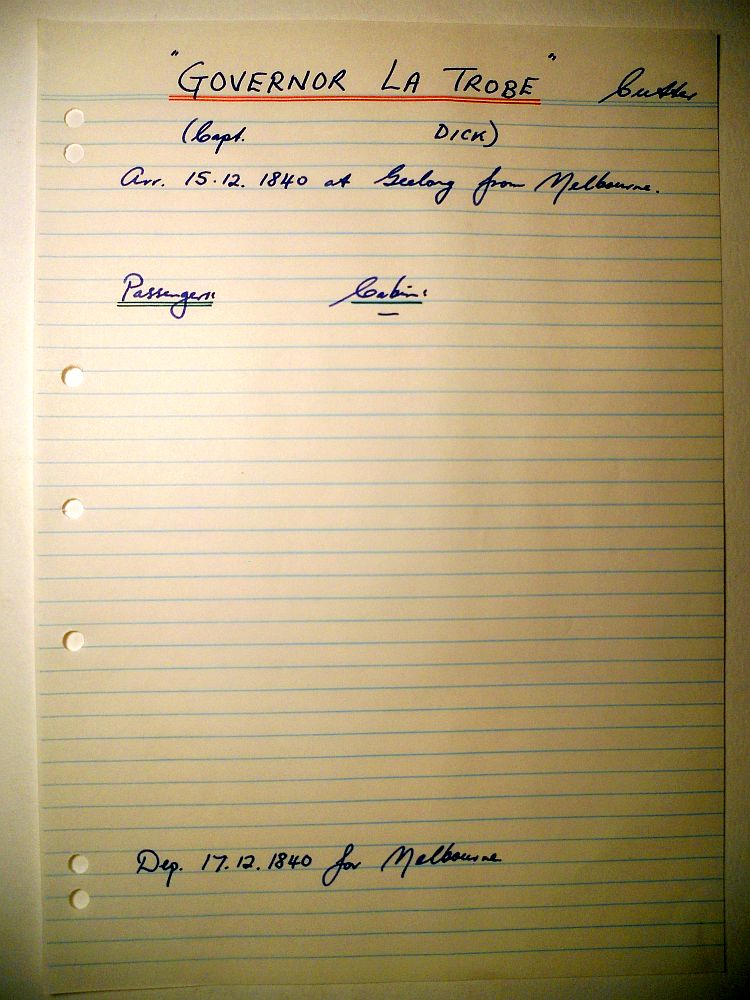 "GOVERNOR LA TROBE" Cutter
(Capt. DICK)
Arr. 15.12.1840 at Geelong from Melbourne.
Passengers: Cabin:
—
Dep. 17.12.1840 for Melbourne